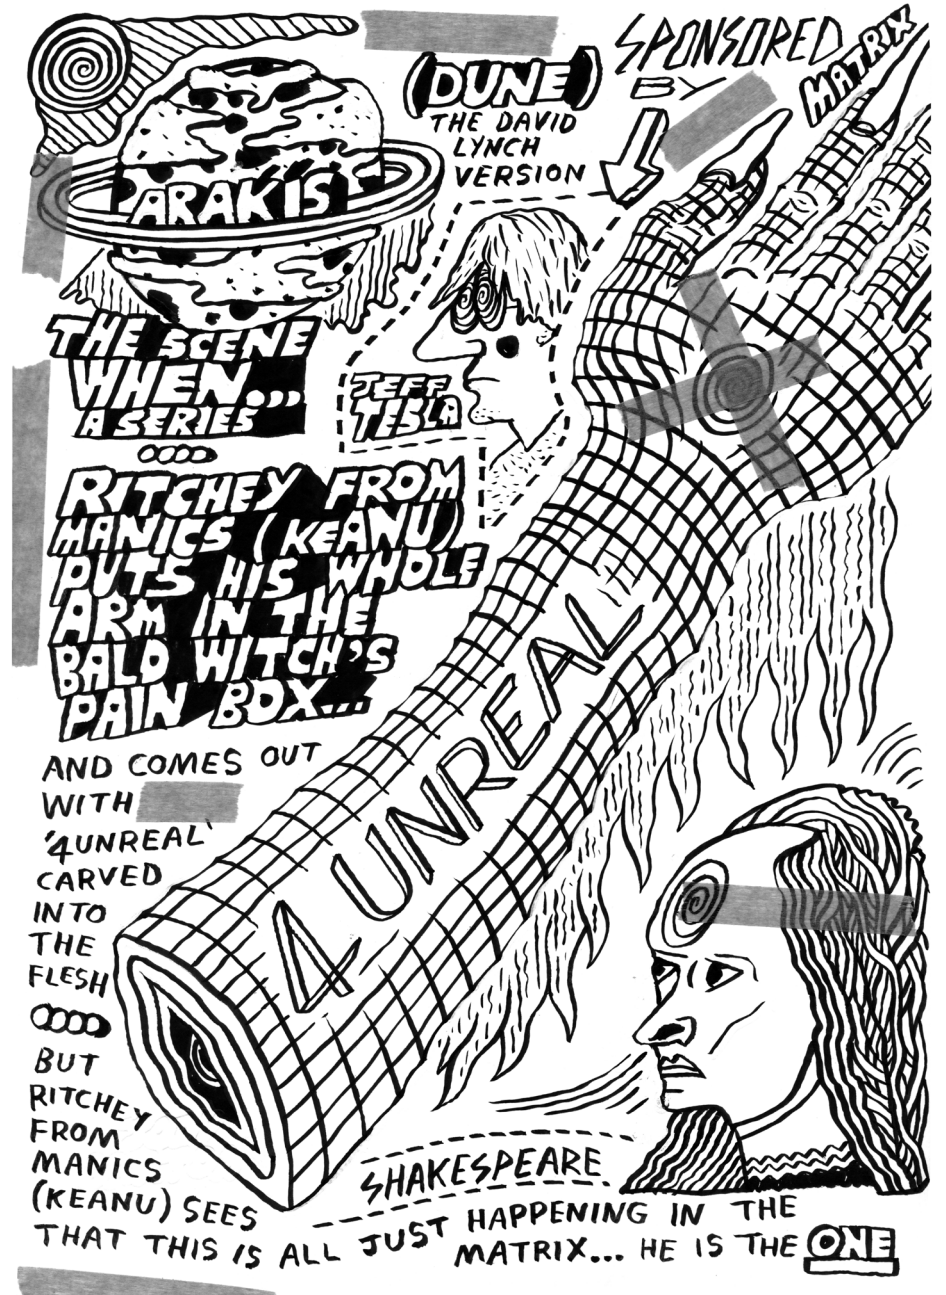 (DUNE)
THE DAVID
LYNCH
VERSION
SPONSORED
BY
MATRIX
ARAKIS
THE SCENE
WHEN...
A SERIES
JEFF
TESLA
RITCHEY FROM
MANICS (KEANU)
PUTS HIS WHOLE
ARM IN THE
BALD WITCH'S
PAIN BOX...
AND COMES OUT
WITH
'4UNREAL'
CARVED
INTO
THE
FLESH
4 UNREAL
BUT
RITCHEY
FROM
MANICS
(KEANU) SEES
THAT THIS IS ALL JUST HAPPENING IN THE
MATRIX... HE IS THE ONE
SHAKESPEARE.